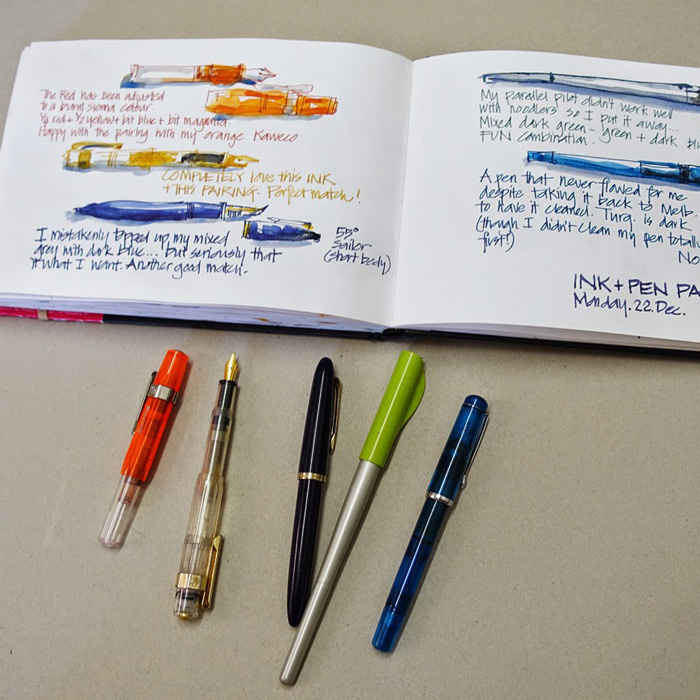 The Red has been adjusted
to a burnt sienna colour.
½ red + ½ yellow + bit blue + bit magenta.
Happy with the pairing with my orange Kaweco
COMPLETELY love this INK
+ THIS PAIRING. Perfect match!
I mistakenly topped up my mixed
grey with dark blue... but seriously that
it what I want. Another good match.
55°
Sailor
(short body)
My parallel pilot didn't work well
with 'noodlers' so I put it away...
Mixed dark green - green + dark blu
FUN combination.
A pen that never flowed for me
despite taking it back to Melb
to have it cleaned. Turq. is dark
(though I didn't clean my pen totall
first!)
No
INK + PEN PA
Monday. 22. Dec.